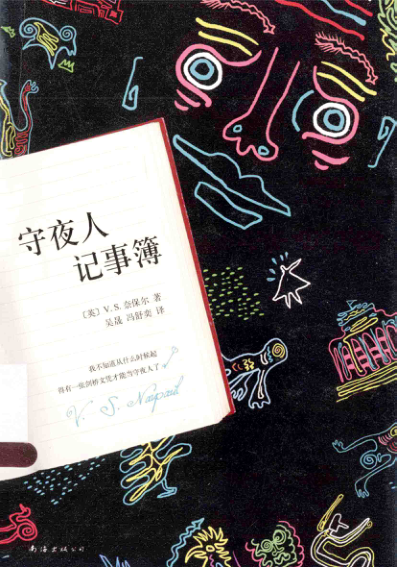 守夜人
记事簿
〔英〕V.S.奈保尔 著
吴晟 冯舒奕 译
我不知道从什么时候起
得有一张剑桥文凭才能当守夜人了
V. S. Naipaul
南海出版公司